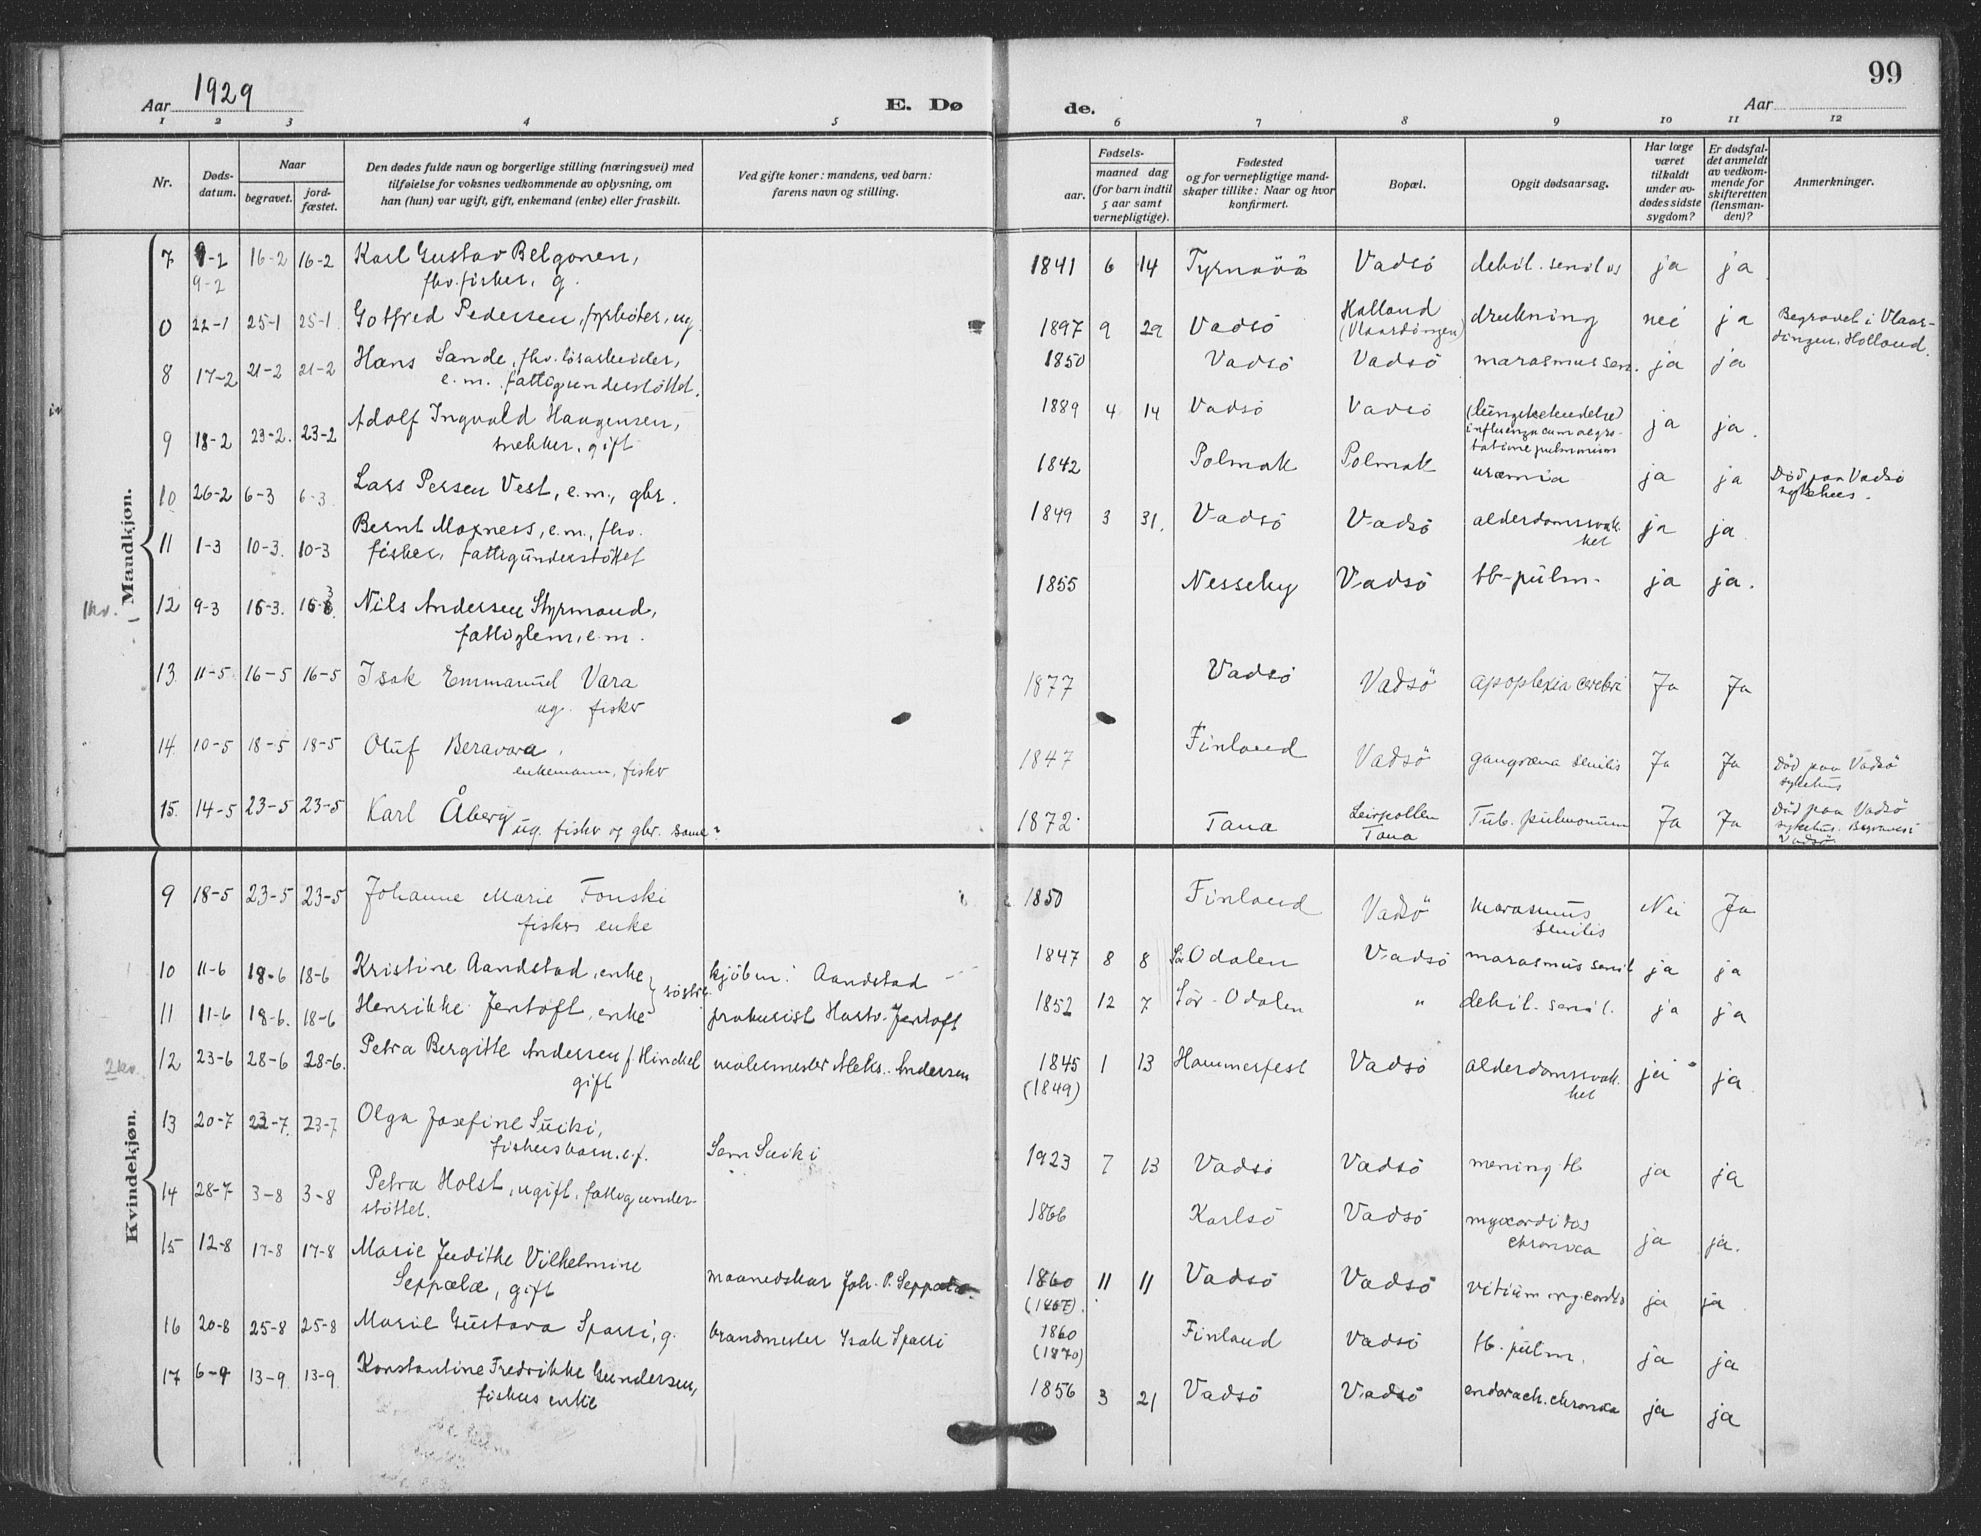 99
Aar 1929
E. Dø
de.
Aar
1 2 3 4 5 6 7 8 9 10 11 12
Nr.
Døds-
datum.
Naar
begravet.
jord-
fæstet.
Den dødes fulde navn og borgerlige stilling (næringsvei) med
tilføielse for voksnes vedkommende av oplysning, om
han (hun) var ugift, gift, enkemand (enke) eller fraskilt.
Ved gifte koner: mandens, ved barn:
farens navn og stilling.
Fødsels-
aar.
maaned dag
(for barn indtil
5 aar samt
vernepligtige).
Fødested
og for vernepligtige mand-
skaper tillike: Naar og hvor
konfirmert.
Bopæl.
Opgit dødsaarsag.
Har læge
været
tilkaldt
under av-
dødes sidste
sygdom?
Er dødsfal-
det anmeldt
av vedkom-
mende for
skifteretten
(lensman-
den)?
Anmerkninger.
Mandkjøn.
7 9-2 16-2 16-2 Karl Gustav Belgonen, 1841 6 14 Tyrnävä Vadsö debil. senilis ja ja
9-2 fhv. fisker, g.
0 22-1 25-1 25-1 Gotfred Pedersen, fyrbøter, ug. 1897 9 29 Vadsö Holland drukning nei ja Begravet i Vlaar-
(Vlaardingen) dingen, Holland.
8 17-2 21-2 21-2 Hans Sande, fhv. løsarbeider, 1850 Vadsö Vadsö marasmus sen. ja ja
e.m. fattigunderstöttet.
9 18-2 23-2. 23-2 Adolf Ingvald Haagensen, 1889 4 14 Vadsö Vadsö (lungebetendelse) ja ja.
snekker, gift influenza cum aegro-
tatione pulmonium
10 26-2 6-3 6-3 Lars Persen Vest, e.m., gbr. 1842 Polmak Polmak uræmia ja ja Död paa Vadsö
sykehus.
11 1-3 10-3. 10-3 Bernt Moxness, e.m., fhv. 1849 3 31. Vadsö Vadsö alderdomssvak- ja ja
fisker, fattigunderstöttet het
1kv. 12 9-3 16-3. 16-3 Nils Andersen Styrmand, 1855 Nesseby Vadsö tb-pulm. ja ja.
fattiglem, e.m.
13. 11-5 16-5 16-5 Isak Emmanuel Vara 1877 Vadsö Vadsö apoplexia cerebri Ja Ja
ug. fisker
14. 10-5 18-5 18-5 Oluf Beravara, 1847 Finland Vadsö gangræna senilis Ja Ja Död paa Vadsö
enkemann, fisker sykehus
15. 14-5 23-5 23-5 Karl Åberg 1872. Tana Leirpollen Tub. pulmonum Ja Ja Död paa Vadsö
ug. fisker og gbr. same? Tana sykehus. Begraves i
Vadsö
Kvindekjøn.
9 18-5 23-5 23-5 Johanne Marie Fonski 1850 Finland Vadsö marasmus Nei Ja
fiskers enke senilis
10 11-6 18-6 18-6 Kristine Aandstad, enke kjöbm. Aandstad 1847 8 8 Sör Odalen Vadsö marasmus senil ja ja
söstre.
11 11-6 18-6. 18-6 Henrikke Jentoft, enke prokurist Hartv. Jentoft 1852 12 7 Sör-Odalen " debil. senil. ja ja
2kv. 12 23-6 28-6 28-6. Petra Bergitte Andersen f. Hinckel malermester Aleks. Andersen 1845 1 13 Hammerfest Vadsö alderdomssvak- ja ja
gift (1849) het
13 20-7 23-7. 23-7 Olga Josefine Suiki, 1923 7 13 Vadsö Vadsö mening tb ja ja
fiskers barn, e.f. Sam Suiki
14 28-7 3-8 3-8 Petra Holst, ugift, fattigunder- 1866 Karlsö Vadsö myocarditas ja ja.
stöttet. chronica
15 12-8 17-8 17-8 Marie Judithe Vilhelmine 1860 11 11 Vadsö Vadsö vitium myocordis ja ja
Seppälä, gift maanedskar Joh. P. Seppälä. (1867).
16 20-8 25-8 25-8 Marie Gustava Sparri, g. brandmester Isak Sparri 1860 Finland Vadsö tb. pulm. ja ja
(1870)
17 6-9 13-9 13-9 Konstantine Fredrikke Gundersen, 1856 3 21 Vadsö Vadsö chronica ja ja
fiskers enke